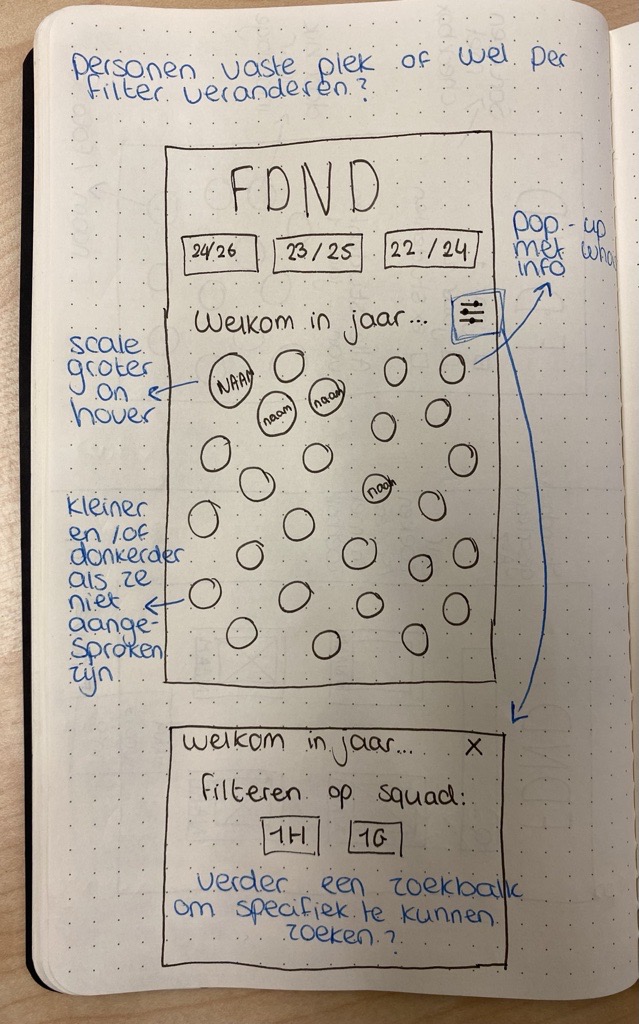 personen vaste plek of wel per
filter veranderen?
FDND
24/26 23/25 22/24
pop-up
met
info
Welkom in jaar...
scale
groter
on
hover
NAAM
naam
naam
naam
kleiner
en/of
donkerder
als ze
niet
aange-
sproken
zijn
Welkom in jaar... X
Filteren op squad:
1H 1G
verder een zoekbalk
om specifiek te kunnen
zoeken?